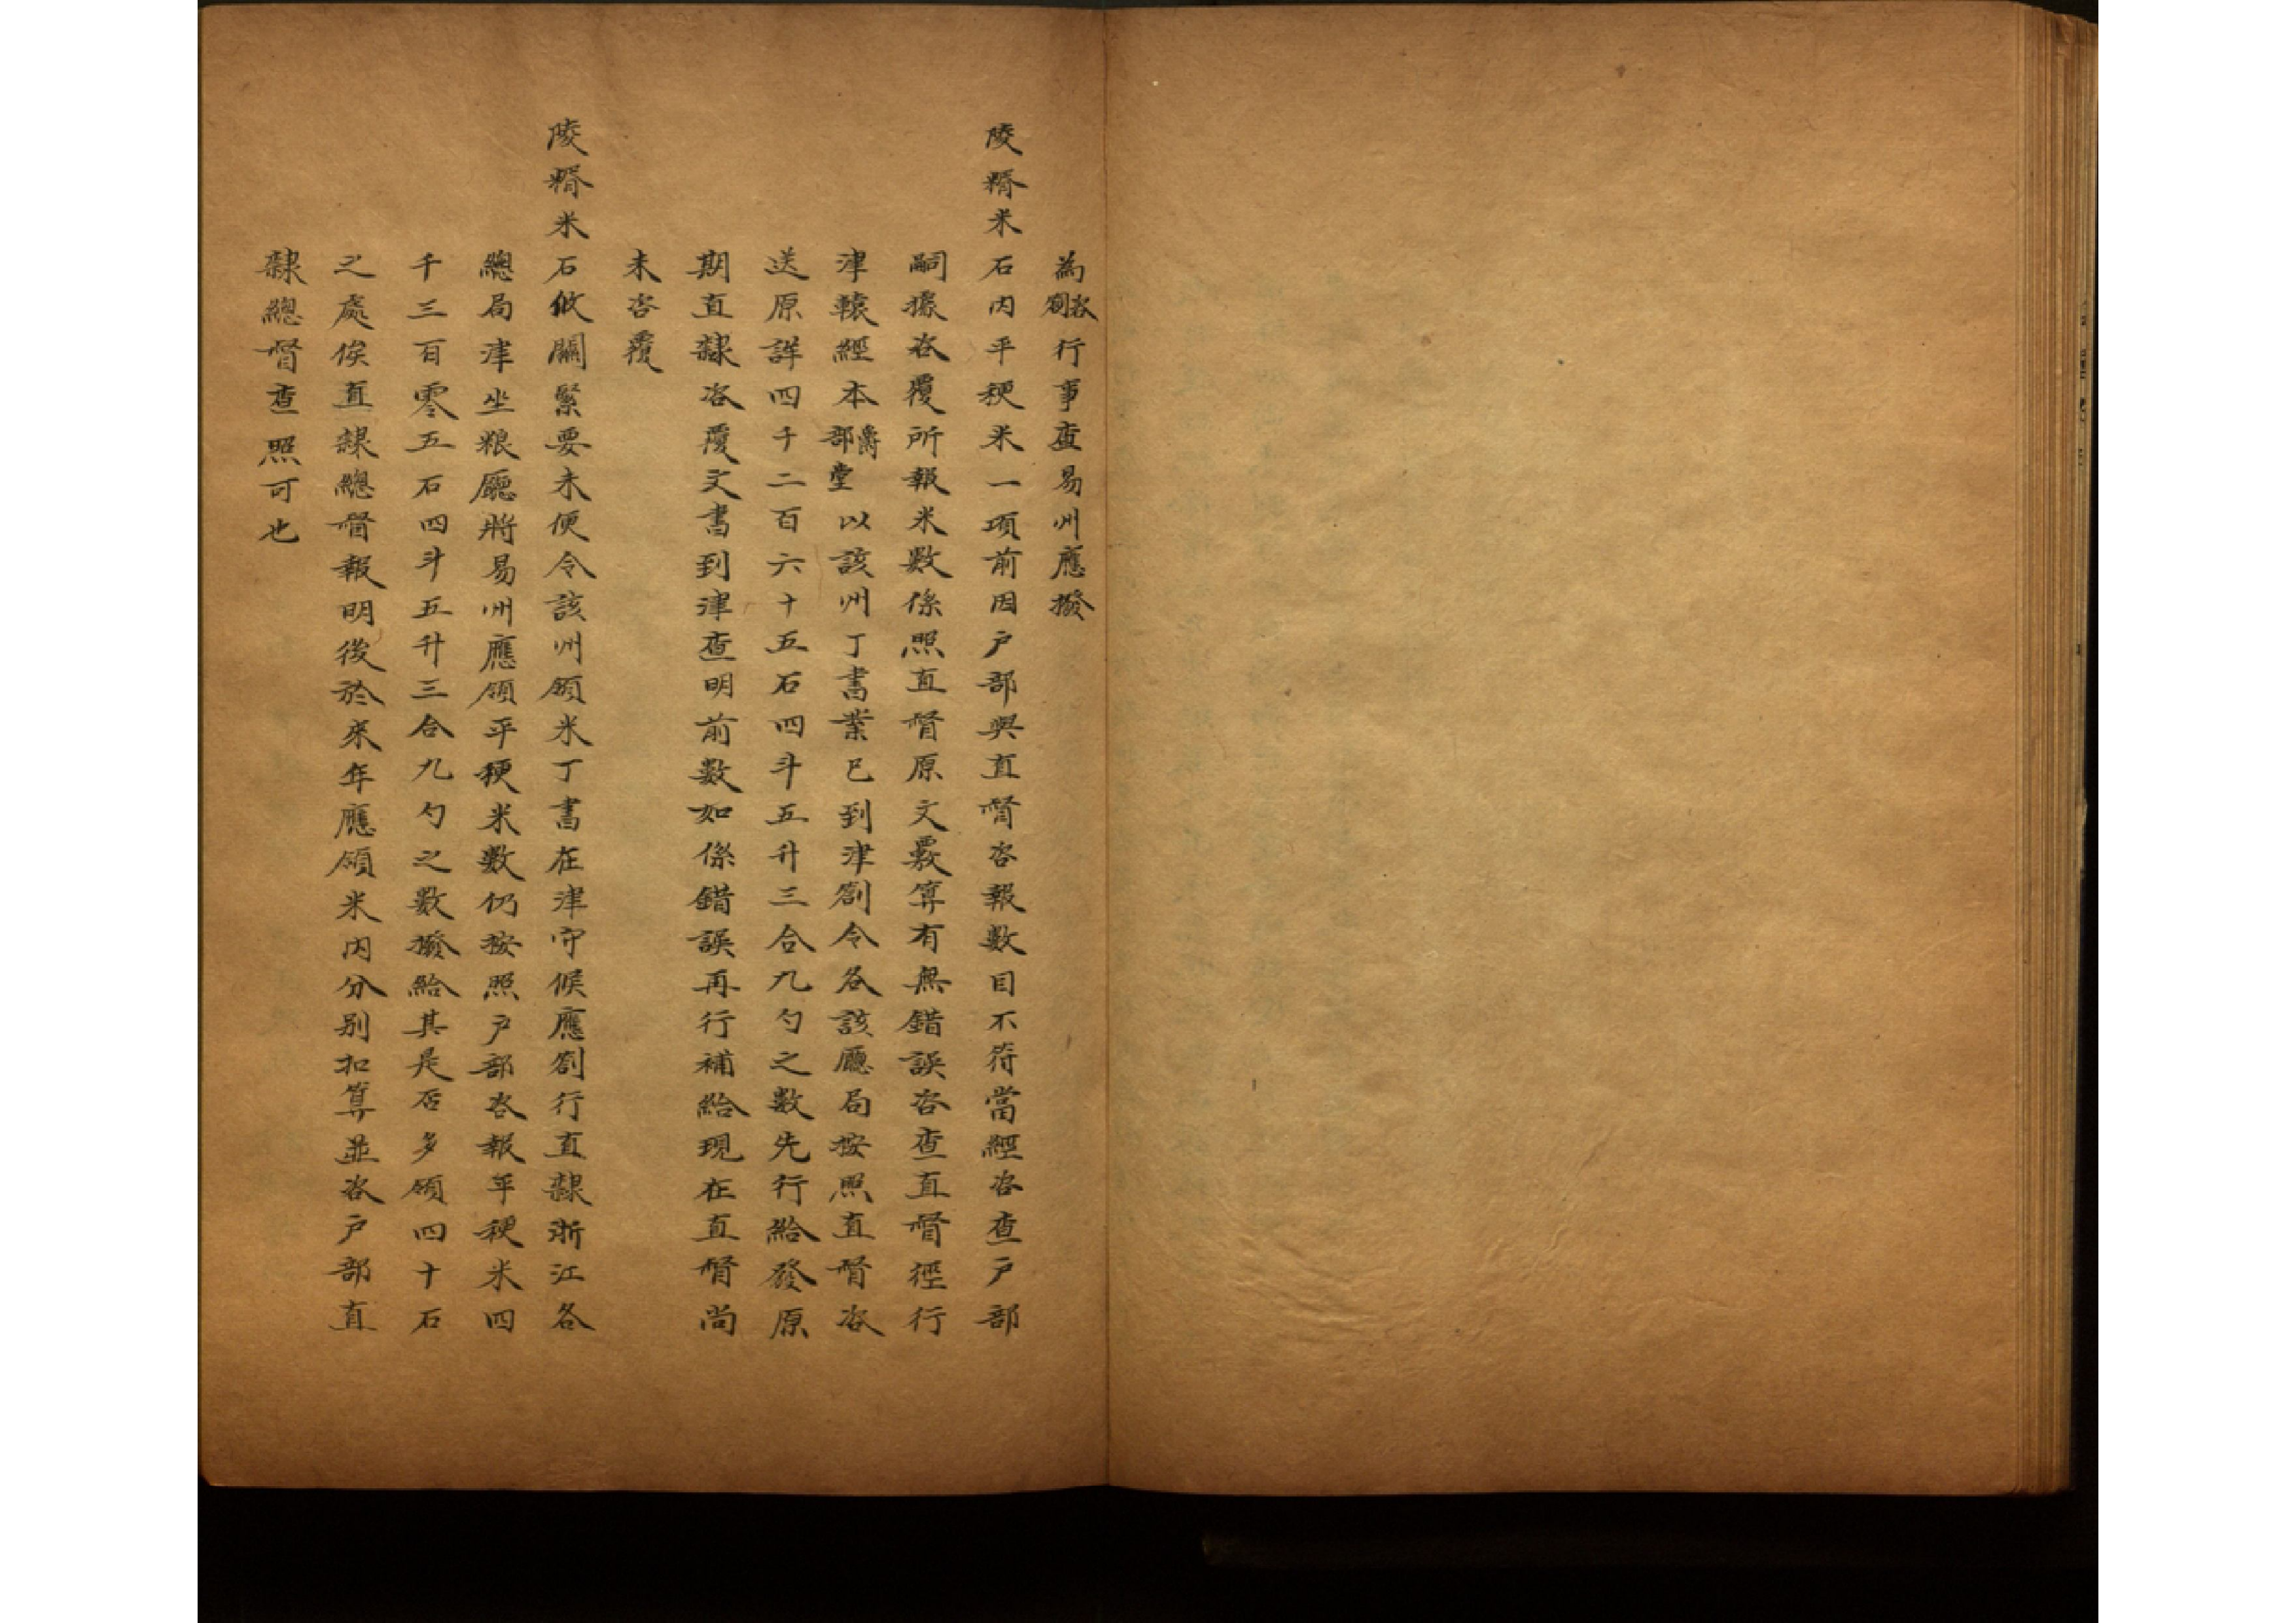 為咨劄行事查易州應撥
陵糈米石内平稉米一項前因户部與直督咨報數目不符當經咨查户部
嗣據咨覆所報米數係照直督原文覈算有無錯誤咨查直督徑行
津轅經本爵部堂以該州丁書業已到津劄令各該廳局按照直督咨
送原詳四千二百六十五石四斗五升三合九勺之數先行給發原
期直隸咨覆文書到津查明前數如係錯誤再行補給現在直督尚
未咨覆
陵糈米石攸關緊要未便令該州領米丁書在津守候應劄行直隸浙江各
總局津坐粮廳將易州應領平稉米數仍按照户部咨報平稉米四
千三百零五石四斗五升三合九勺之數撥給其是否多領四十石
之處俟直隸總督報明後於來年應領米内分别扣算並咨户部直
隸總督查照可也